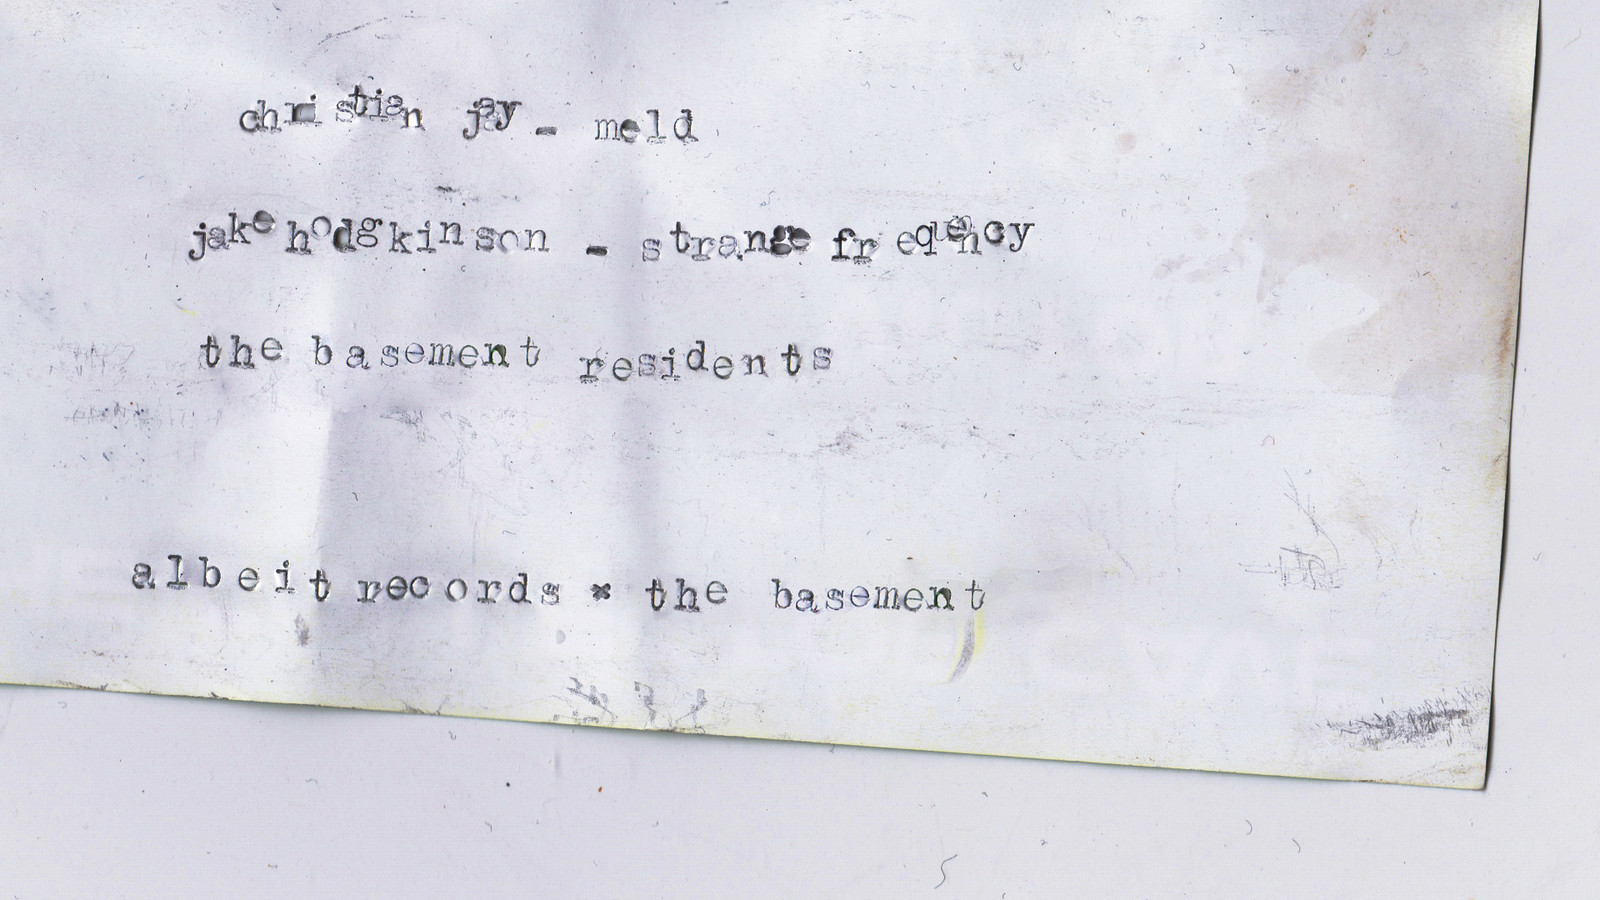 christian jay - meld
jake hodgkinson - strange frequency
the basement residents
albeit records × the basement